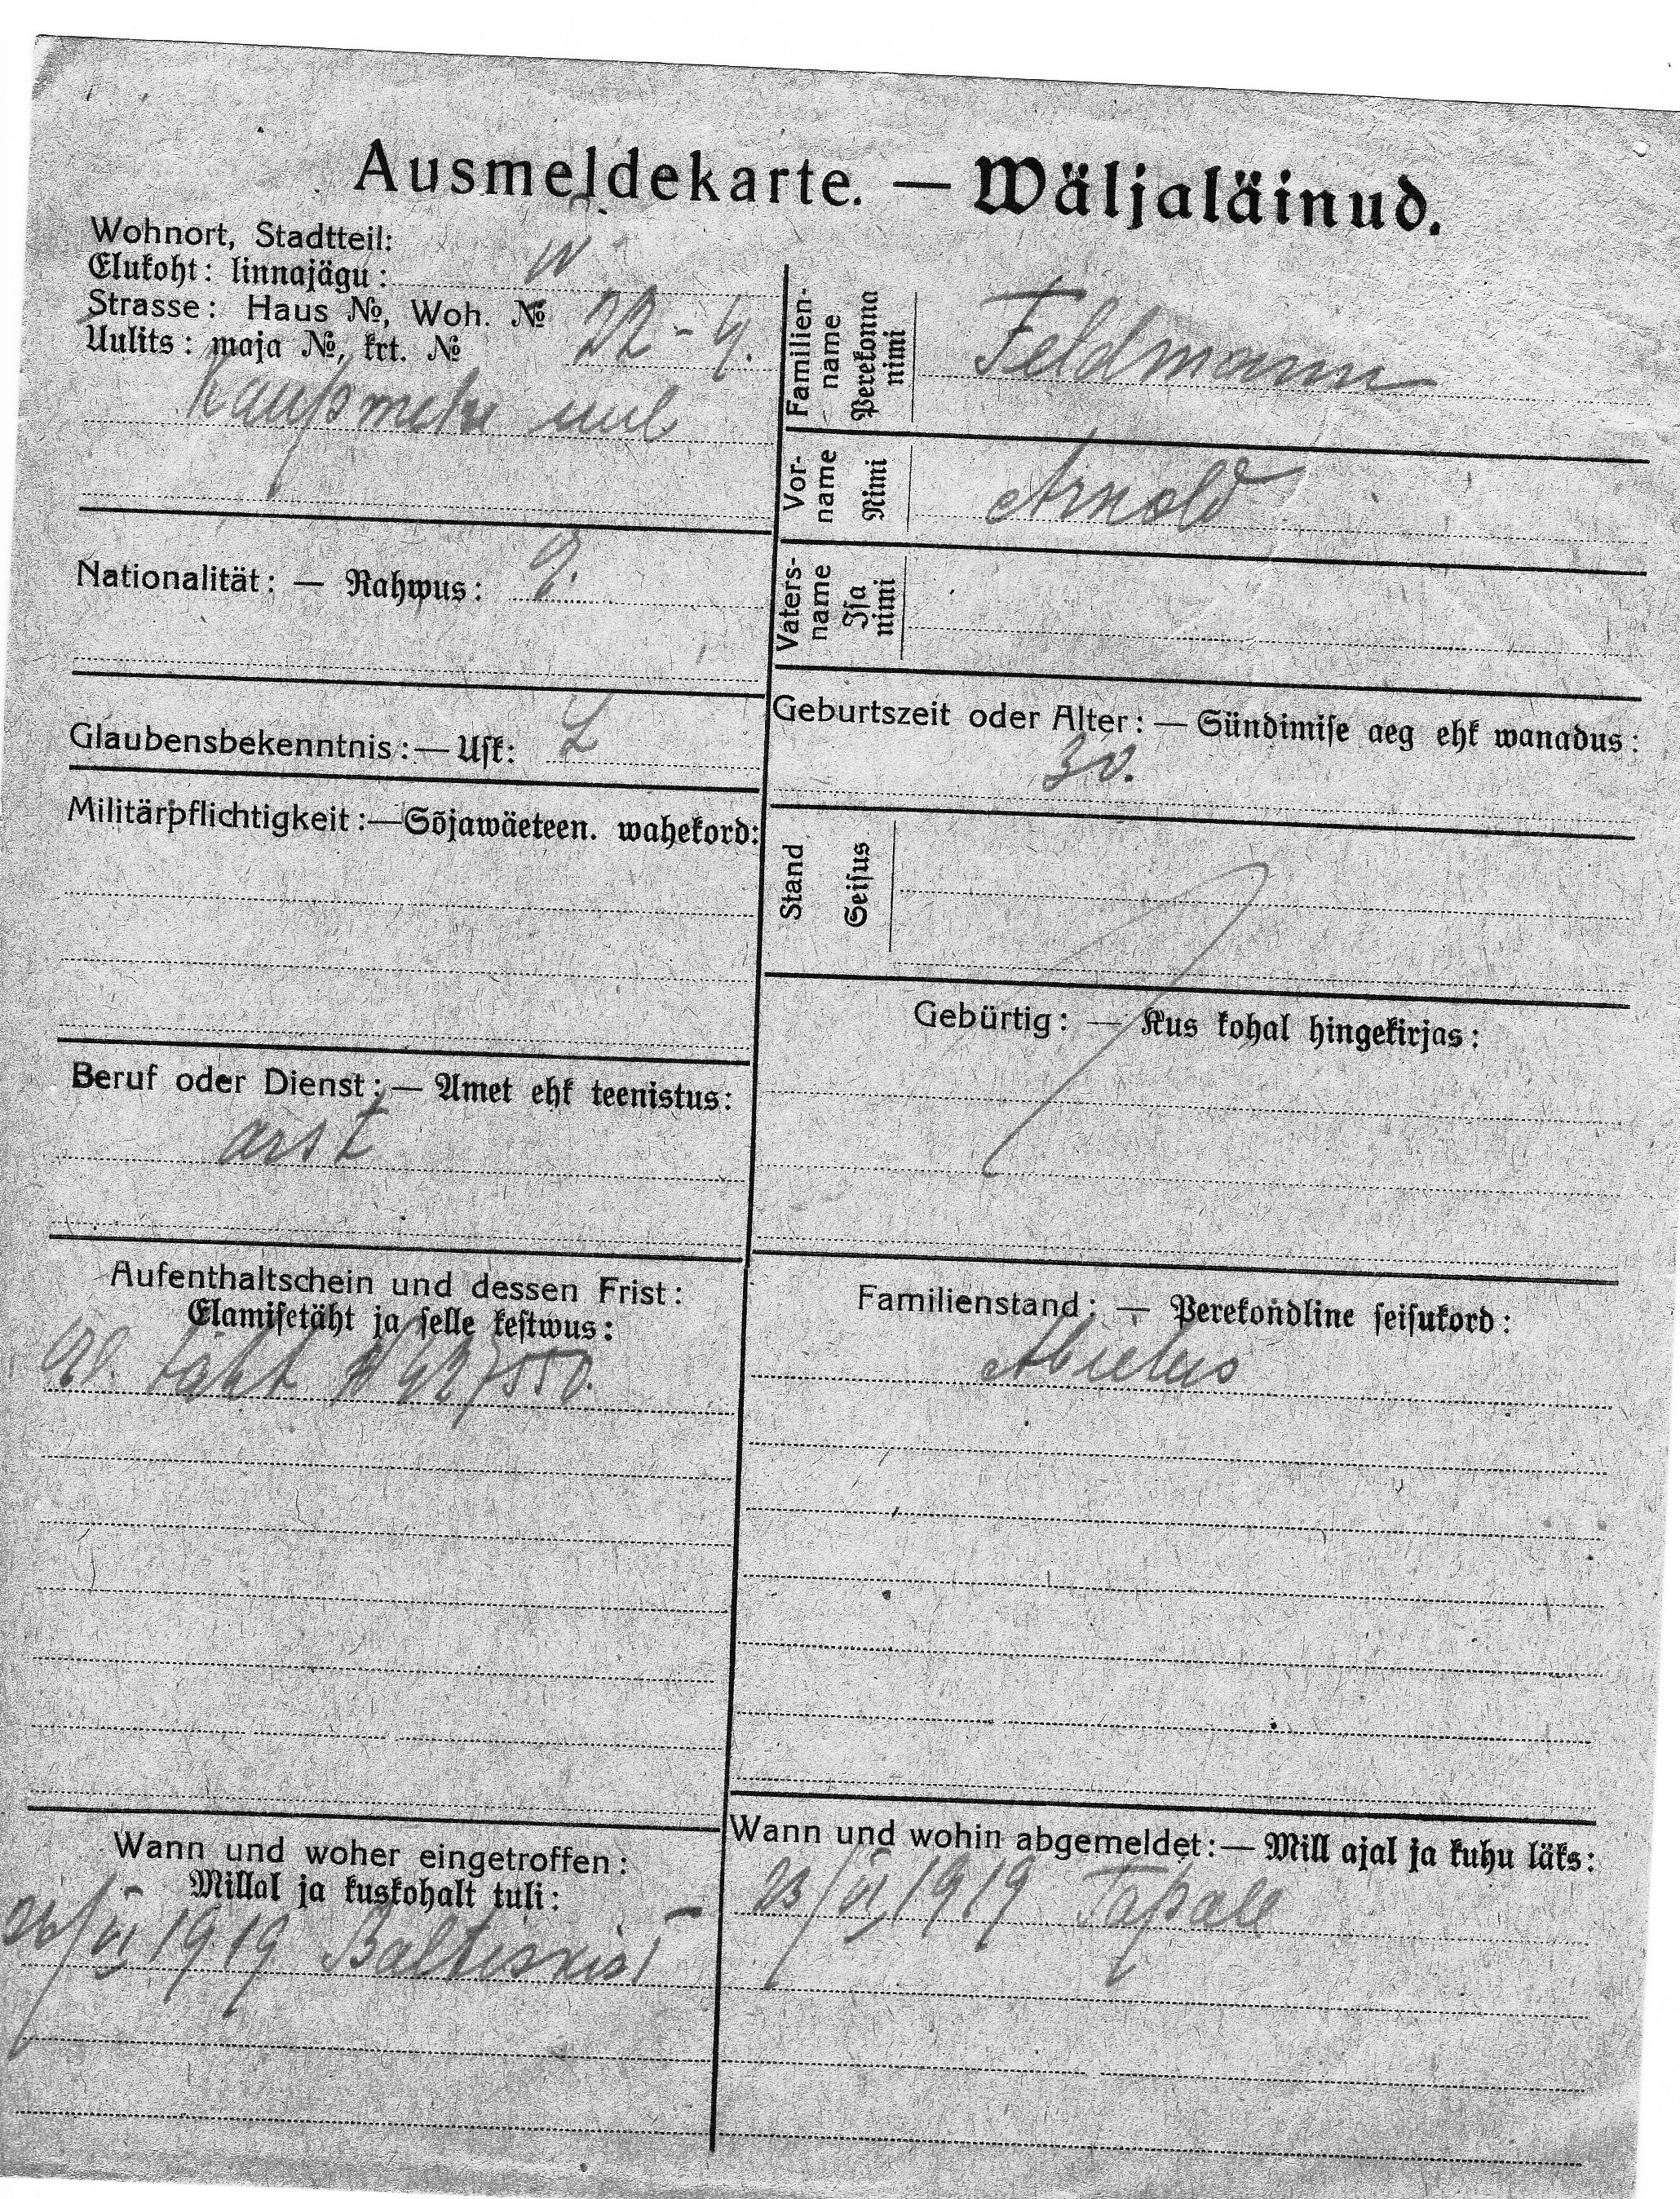 Ausmeldekarte. — Wäljaläinud.
Wohnort, Stadtteil:
Elukoht: linnajägu: W
Strasse: Haus №, Woh. №
Uulits: maja №, krt. № 22-4.
Kaupmehe uul
Nationalität: — Rahwus:
Glaubensbekenntnis: — Usk: L
Militärpflichtigkeit: — Sõjawäeteen. wahekord:
Beruf oder Dienst: — Amet ehk teenistus:
arst
Aufenthaltschein und dessen Frist:
Elamisetäht ja selle kestwus:
täht № 427550.
Wann und woher eingetroffen:
Millal ja kuskohalt tuli:
VI 1919 Baltiskist
Familien-
name
Perekonna
nimi
Feldmann
Vor-
name
Nimi
Arnold
Vaters-
name
Isa
nimi
Geburtszeit oder Alter: — Sündimise aeg ehk wanadus:
30.
Stand
Seisus
Gebürtig: — Kus kohal hingekirjas:
Familienstand: — Perekondline seisukord:
Abielus
Wann und wohin abgemeldet: — Mill ajal ja kuhu läks:
23/VI 1919 Tapale